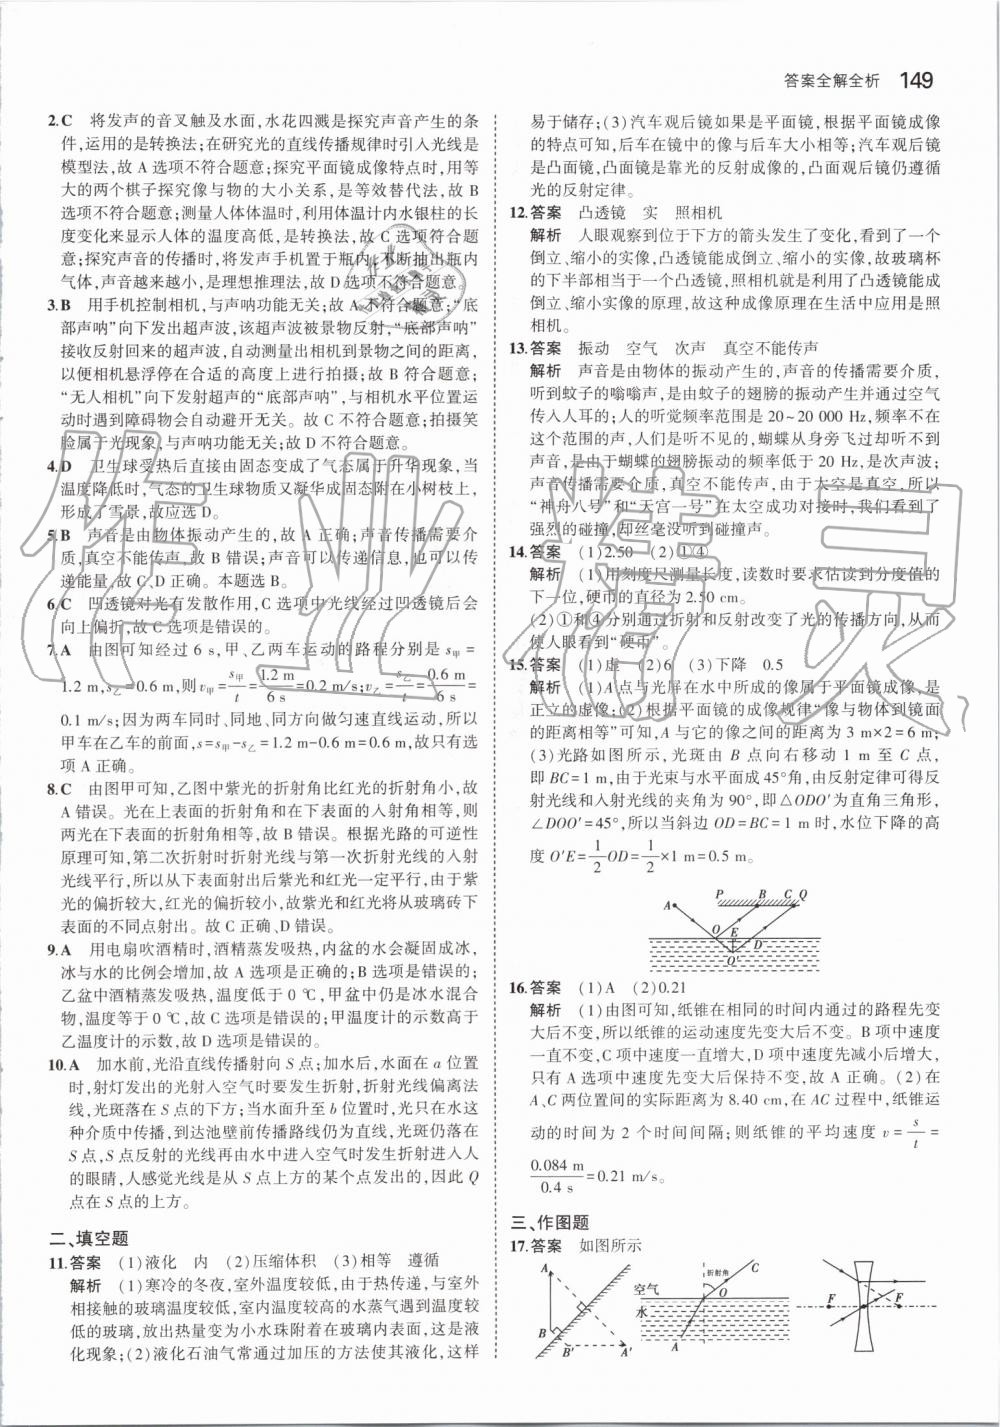 答案全解全析 149
2.C 将发声的音叉触及水面,水花四溅是探究声音产生的条
件,运用的是转换法;在研究光的直线传播规律时引入光线是
模型法,故 A 选项不符合题意;探究平面镜成像特点时,用等
大的两个棋子探究像与物的大小关系,是等效替代法,故 B
选项不符合题意;测量人体体温时,利用体温计内水银柱的长
度变化来显示人体的温度高低,是转换法,故 C 选项符合题
意;探究声音的传播时,将发声手机置于瓶内,不断抽出瓶内
气体,声音越来越小,是理想推理法,故 D 选项不符合题意。
3.B 用手机控制相机,与声呐功能无关;故 A 不符合题意;“底
部声呐”向下发出超声波,该超声波被景物反射,“底部声呐”
接收反射回来的超声波,自动测量出相机到景物之间的距离,
以便相机悬浮停在合适的高度上进行拍摄;故 B 符合题意;
“无人相机”向下发射超声的“底部声呐”,与相机水平位置运
动时遇到障碍物会自动避开无关。故 C 不符合题意;拍摄笑
脸属于光现象,与声呐功能无关;故 D 不符合题意。
4.D 卫生球受热后直接由固态变成了气态属于升华现象,当
温度降低时,气态的卫生球物质又凝华成固态附在小树枝上,
形成了雪景,故应选 D。
5.B 声音是由物体振动产生的,故 A 正确;声音传播需要介
质,真空不能传声,故 B 错误;声音可以传递信息,也可以传
递能量,故 C、D 正确。本题选 B。
6.C 凹透镜对光有发散作用,C 选项中光线经过凹透镜后会
向上偏折,故 C 选项是错误的。
7.A 由图可知经过 6 s,甲、乙两车运动的路程分别是 s甲=
1.2 m,s乙=0.6 m,则 v甲=s甲/t=1.2 m/6 s=0.2 m/s;v乙=s乙/t=0.6 m/6 s=
0.1 m/s;因为两车同时、同地、同方向做匀速直线运动,所以
甲车在乙车的前面,s=s甲-s乙=1.2 m-0.6 m=0.6 m,故只有选
项 A 正确。
8.C 由图甲可知,乙图中紫光的折射角比红光的折射角小,故
A 错误。光在上表面的折射角和在下表面的入射角相等,则
两光在下表面的折射角相等,故 B 错误。根据光路的可逆性
原理可知,第二次折射时折射光线与第一次折射光线的入射
光线平行,所以从下表面射出后紫光和红光一定平行,由于紫
光的偏折较大,红光的偏折较小,故紫光和红光将从玻璃砖下
表面的不同点射出。故 C 正确、D 错误。
9.A 用电扇吹酒精时,酒精蒸发吸热,内盆的水会凝固成冰,
冰与水的比例会增加,故 A 选项是正确的;B 选项是错误的;
乙盆中酒精蒸发吸热,温度低于 0 ℃,甲盆中仍是冰水混合
物,温度等于 0 ℃,故 C 选项是错误的;甲温度计的示数高于
乙温度计的示数,故 D 选项是错误的。
10.A 加水前,光沿直线传播射向 S 点;加水后,水面在 a 位置
时,射灯发出的光射入空气时要发生折射,折射光线偏离法
线,光斑落在 S 点的下方;当水面升至 b 位置时,光只在水这
种介质中传播,到达池壁前传播路线仍为直线,光斑仍落在
S 点,S 点反射的光线再由水中进入空气时发生折射进入人
的眼睛,人感觉光线是从 S 点上方的某个点发出的,因此 Q
点在 S 点的上方。
二、填空题
11.答案 (1)液化 内 (2)压缩体积 (3)相等 遵循
解析 (1)寒冷的冬夜,室外温度较低,由于热传递,与室外
相接触的玻璃温度较低,室内温度较高的水蒸气遇到温度较
低的玻璃,放出热量变为小水珠附着在玻璃内表面,这是液
化现象;(2)液化石油气常通过加压的方法使其液化,这样
易于储存;(3)汽车观后镜如果是平面镜,根据平面镜成像
的特点可知,后车在镜中的像与后车大小相等;汽车观后镜
是凸面镜,凸面镜是靠光的反射成像的,凸面观后镜仍遵循
光的反射定律。
12.答案 凸透镜 实 照相机
解析 人眼观察到位于下方的箭头发生了变化,看到了一个
倒立、缩小的实像,凸透镜能成倒立、缩小的实像,故玻璃杯
的下半部相当于一个凸透镜,照相机就是利用了凸透镜能成
倒立、缩小实像的原理,故这种成像原理在生活中应用是照
相机。
13.答案 振动 空气 次声 真空不能传声
解析 声音是由物体的振动产生的,声音的传播需要介质,
听到蚊子的嗡嗡声,是由蚊子的翅膀的振动产生并通过空气
传入人耳的;人的听觉频率范围是 20~20 000 Hz,频率不在
这个范围的声,人们是听不见的,蝴蝶从身旁飞过却听不到
声音,是由于蝴蝶的翅膀振动的频率低于 20 Hz,是次声波;
声音传播需要介质,真空不能传声,由于太空是真空,所以
“神舟八号”和“天宫一号”在太空成功对接时,我们看到了
强烈的碰撞,却丝毫没听到碰撞声。
14.答案 (1)2.50 (2)①④
解析 (1)用刻度尺测量长度,读数时要求估读到分度值的
下一位,硬币的直径为 2.50 cm。
(2)①和④分别通过折射和反射改变了光的传播方向,从而
使人眼看到“硬币”。
15.答案 (1)虚 (2)6 (3)下降 0.5
解析 (1)A 点与光屏在水中所成的像属于平面镜成像,是
正立的虚像;(2)根据平面镜的成像规律“像与物体到镜面
的距离相等”可知,A 与它的像之间的距离为 3 m×2=6 m;
(3)光路如图所示,光斑由 B 点向右移动 1 m 至 C 点,
即 BC=1 m,由于光束与水平面成45°角,由反射定律可得反
射光线和入射光线的夹角为 90°,即△ODO′为直角三角形,
∠DOO′=45°,所以当斜边 OD=BC=1 m 时,水位下降的高
度 O′E=1/2OD=1/2×1 m=0.5 m。
A P B C Q
O E D
O′
16.答案 (1)A (2)0.21
解析 (1)由图可知,纸锥在相同的时间内通过的路程先变
大后不变,所以纸锥的运动速度先变大后不变。B 项中速度
一直不变,C 项中速度一直增大,D 项中速度先减小后增大,
只有 A 选项中速度先变大后保持不变,故 A 正确。(2)在
A、C 两位置间的实际距离为 8.40 cm,在 AC 过程中,纸锥运
动的时间为 2 个时间间隔;则纸锥的平均速度 v=s/t=
0.084 m/0.4 s=0.21 m/s。
三、作图题
17.答案 如图所示
A B B′ A′
空气 水 折射角 C O A
F F
作业精灵